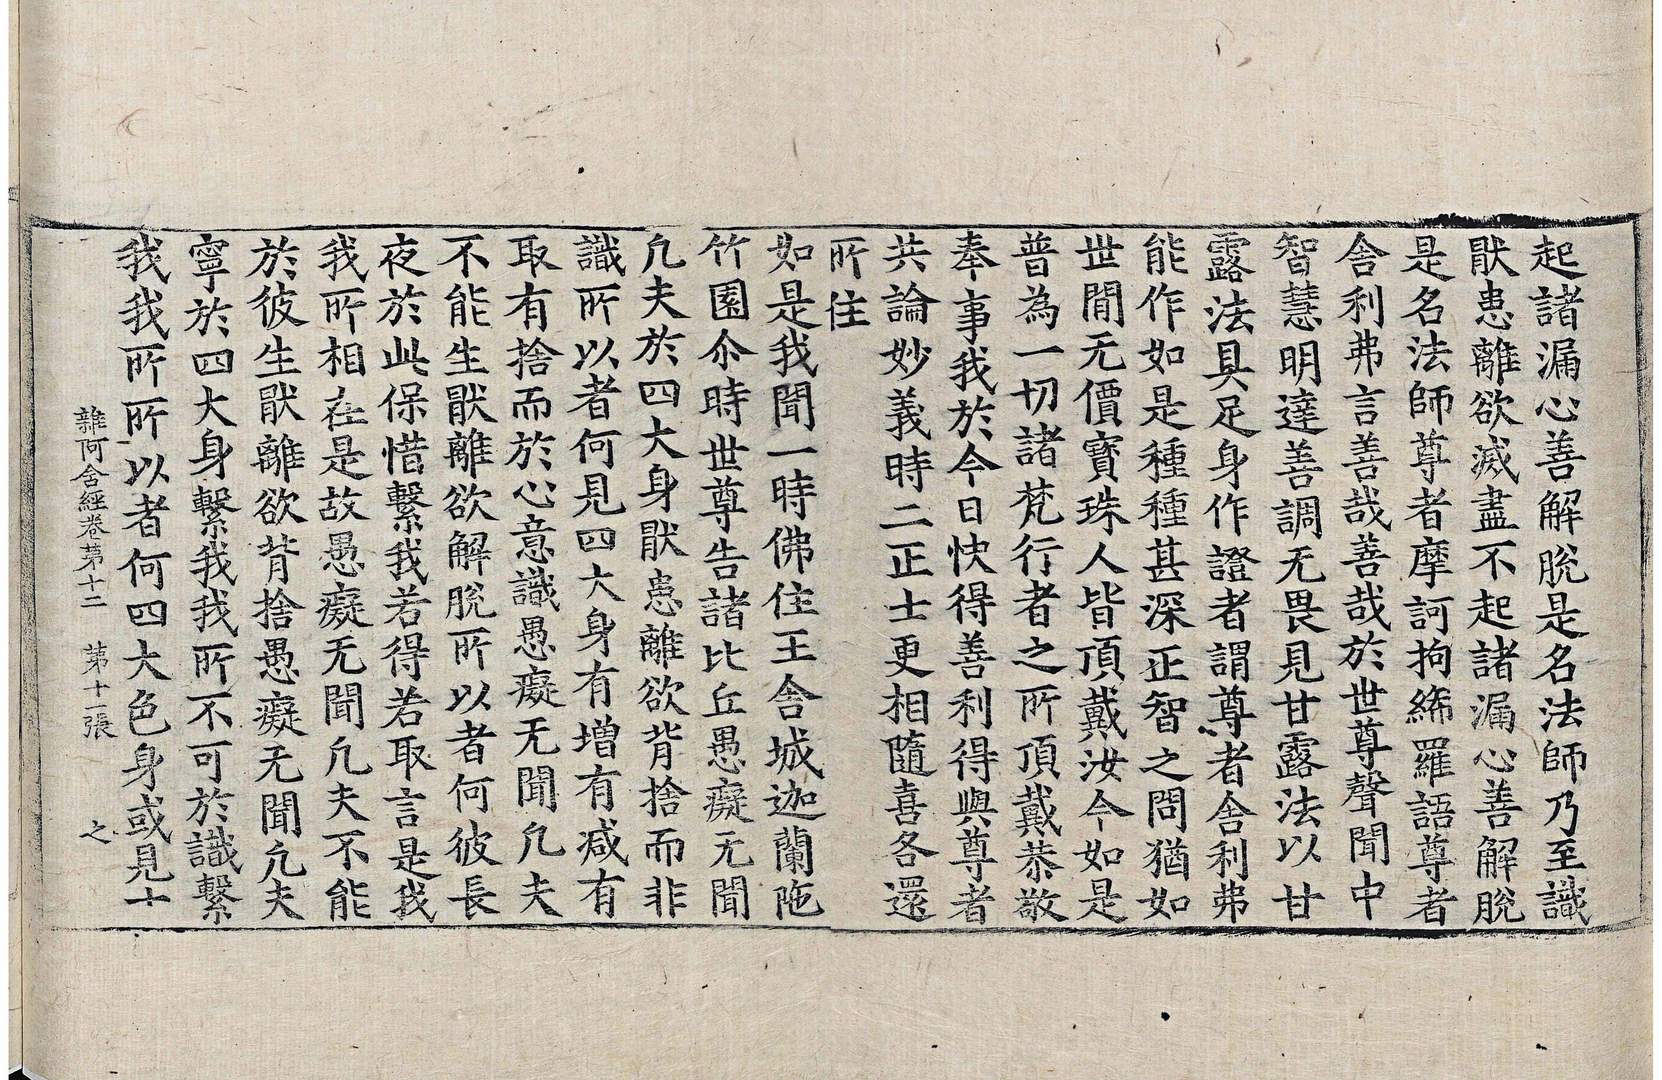 起諸漏心善解脫是名法師乃至識
猒患離欲滅盡不起諸漏心善解脫
是名法師尊者摩訶拘絺羅語尊者
舎利弗言善哉善哉於世尊聲聞中
智慧明達善調无畏見甘露法以甘
露法具足身作證者謂尊者舎利弗
能作如是種種甚深正智之問猶如
世閒无價寶珠人皆頂戴汝今如是
普為一切諸梵行者之所頂戴恭敬
奉事我於今日快得善利得與尊者
共論妙義時二正士更相隨喜各還
所住
如是我聞一時佛住王舎城迦蘭陁
竹園尒時世尊告諸比丘愚癡无聞
凡夫於四大身猒患離欲背捨而非
識所以者何見四大身有増有减有
取有捨而於心意識愚癡无聞凡夫
不能生猒離欲解脫所以者何彼長
夜於此保惜繫我若得若取言是我
我所相在是故愚癡无聞凡夫不能
於彼生猒離欲背捨愚癡无聞凡夫
寧於四大身繫我我所不可於識繫
我我所所以者何四大色身或見十
雜阿含經卷苐十二 苐十一張 之